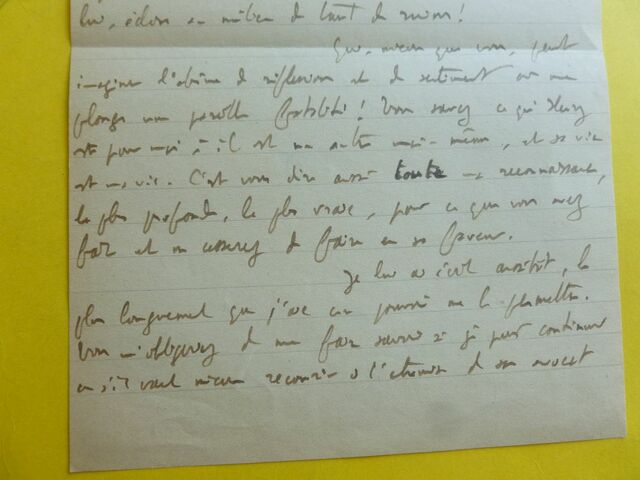 lui, éclos au milieu de tant de ruines !
Qui, mieux que vous, peut
imaginer l'abîme de réflexions et de sentiments où me
plonge une pareille fatalité ! Vous savez ce qu'
est pour moi : il est un autre moi-même, et sa vie
est ma vie. C'est vous dire aussi toute ma reconnaissance,
la plus profonde, la plus vraie, pour ce que vous avez
fait et ne cesserez de faire en sa faveur.
Je lui ai écrit aussitôt, le
plus longuement que j'aie cru pouvoir me le permettre.
Vous m'obligerez de me faire savoir si je puis continuer
ou s'il vaut mieux recourir à de son avocat